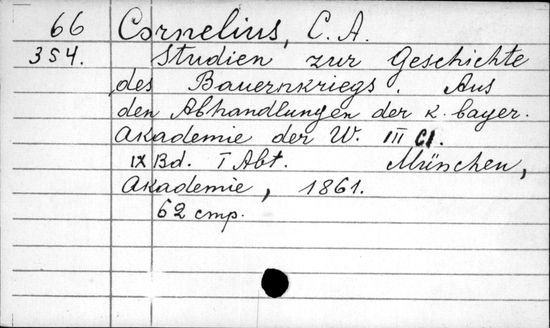 66 Cornelius, C. A.
354. Studien zur Geschichte
des Bauernkriegs. Aus
den Abhandlungen der k. bayer.
Akademie der W. III Cl.
IX Bd. I Abt. München,
Akademie, 1861.
62 стр.